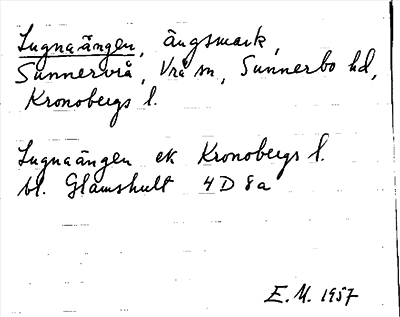 Lugnaängen, ängsmark,
Sunnervrå, Vrå sn, Sunnerbo hd,
Kronobergs l.
Lugnaängen ek Kronobergs l.
bl. Glamshult 4D 8a
E.M. 1957